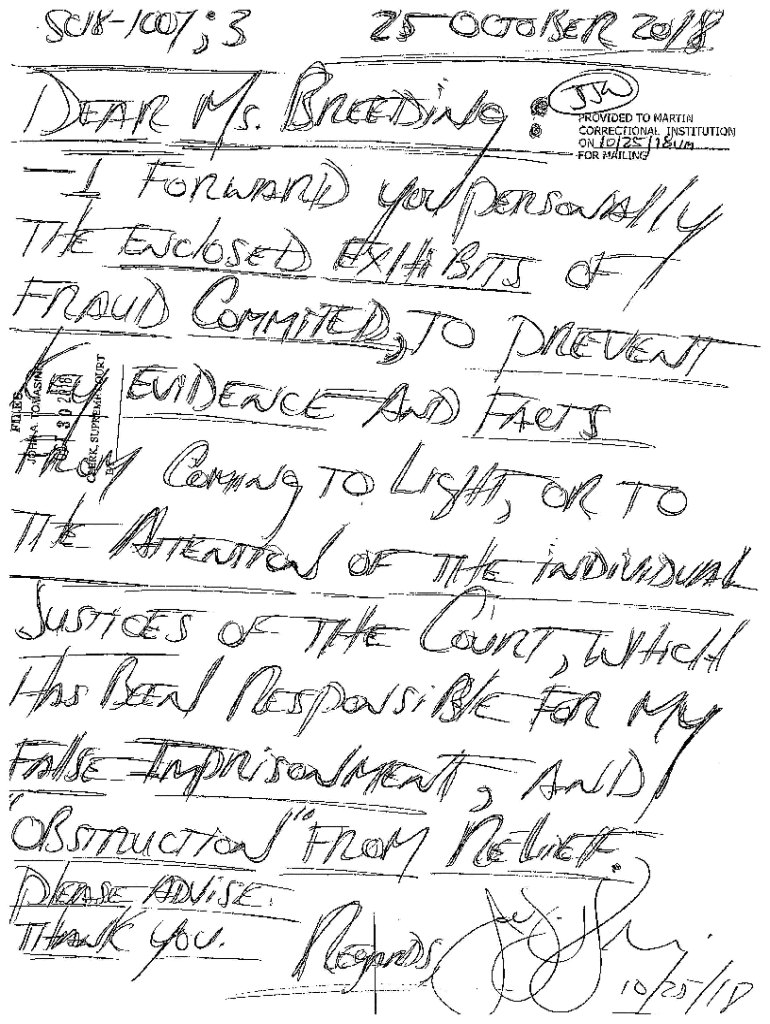 SC18-1007; 3 25 OCTOBER 2018
DEAR Ms. BREEDING:
JJW
PROVIDED TO MARTIN
CORRECTIONAL INSTITUTION
ON 10/25/18
FOR MAILING
—I FORWARD YOU PERSONALLY
THE ENCLOSED EXHIBITS OF
FRAUD COMMITED, TO PREVENT
KEY EVIDENCE AND FACTS
FILED
JOHN A. TOMASINO
30 2018
CLERK, SUPREME COURT
BY
FROM COMING TO LIGHT, OR TO
THE ATTENTION OF THE INDIVIDUAL
JUSTICES OF THE COURT, WHICH
HAS BEEN RESPONSIBLE FOR MY
FALSE IMPRISONMENT, AND
"OBSTRUCTION" FROM RELIEF.
PLEASE ADVISE.
THANK YOU.
REGARDS,
10/25/18